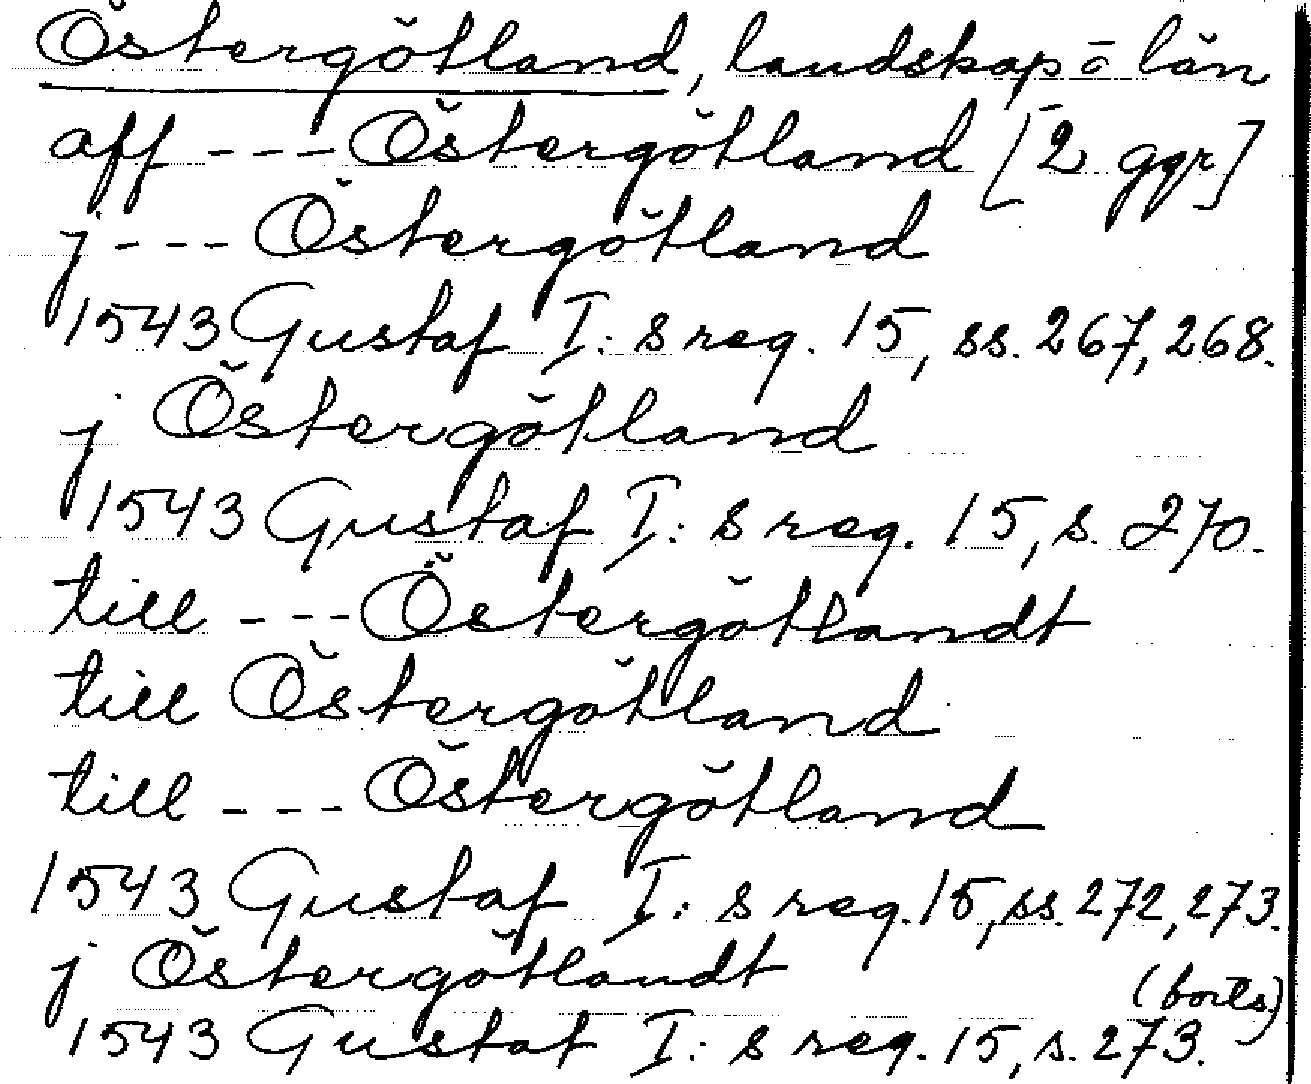 Östergötland, landskap o län
aff --- Östergötland [2 ggr]
j --- Östergötland
1543 Gustaf I:s reg. 15, ss. 267, 268.
j Östergötland
1543 Gustaf I:s reg. 15, s. 270.
till --- Östergötlandt
till Östergötland
till --- Östergötland
1543 Gustaf I:s reg. 15, ss. 272, 273.
j Östergötlandt
(forts.)
1543 Gustaf I:s reg. 15, s. 273.